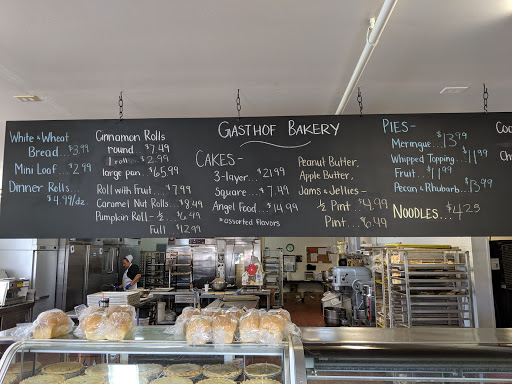 GASTHOF BAKERY
White & Wheat
Bread...$3.99
Mini Loaf...$2.99
Dinner Rolls..
$4.99/dz.
Cinnamon Rolls
round...$7.49
1 roll...$2.99
large pan.$65.99
Roll with Fruit...$7.99
Caramel Nut Rolls...$8.49
Pumpkin Roll-½...$6.49
Full $12.99
CAKES-
3-layer...$21.99
Square...$7.49
Angel Food...$14.99
*assorted flavors
Peanut Butter,
Apple Butter,
Jams & Jellies-
½ Pint...$4.99
Pint...$6.49
PIES-
Meringue...$13.99
Whipped Topping...$11.99
Fruit...$11.99
Pecan & Rhubarb..$13.99
NOODLES...$4.25